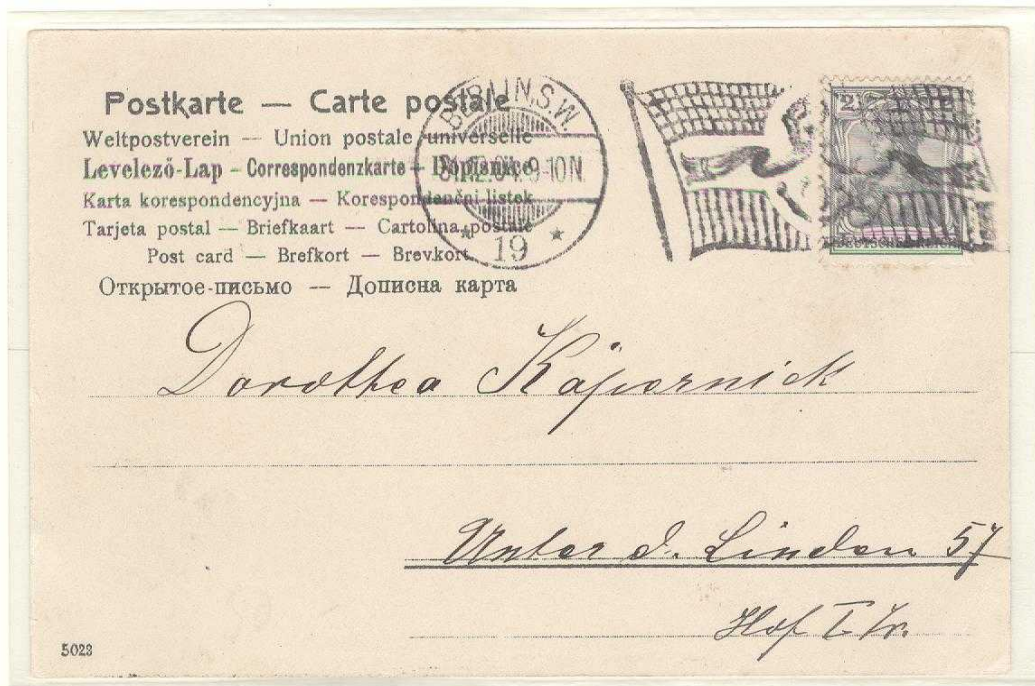 Postkarte — Carte postale
Weltpostverein — Union postale universelle
Levelező-Lap – Correspondenzkarte – Dopisnice
Karta korespondencyjna — Korespondenční lístek
Tarjeta postal — Briefkaart — Cartolina postale
Post card — Brefkort — Brevkort
Открытое-письмо — Дописна карта
BERLIN.S.W.
31.12.04.9-10N.
* 19 *
2
DEUTSCHES REICH
Dorothea Käpernick
Unter d. Linden 57
Hof I. Tr.
5023